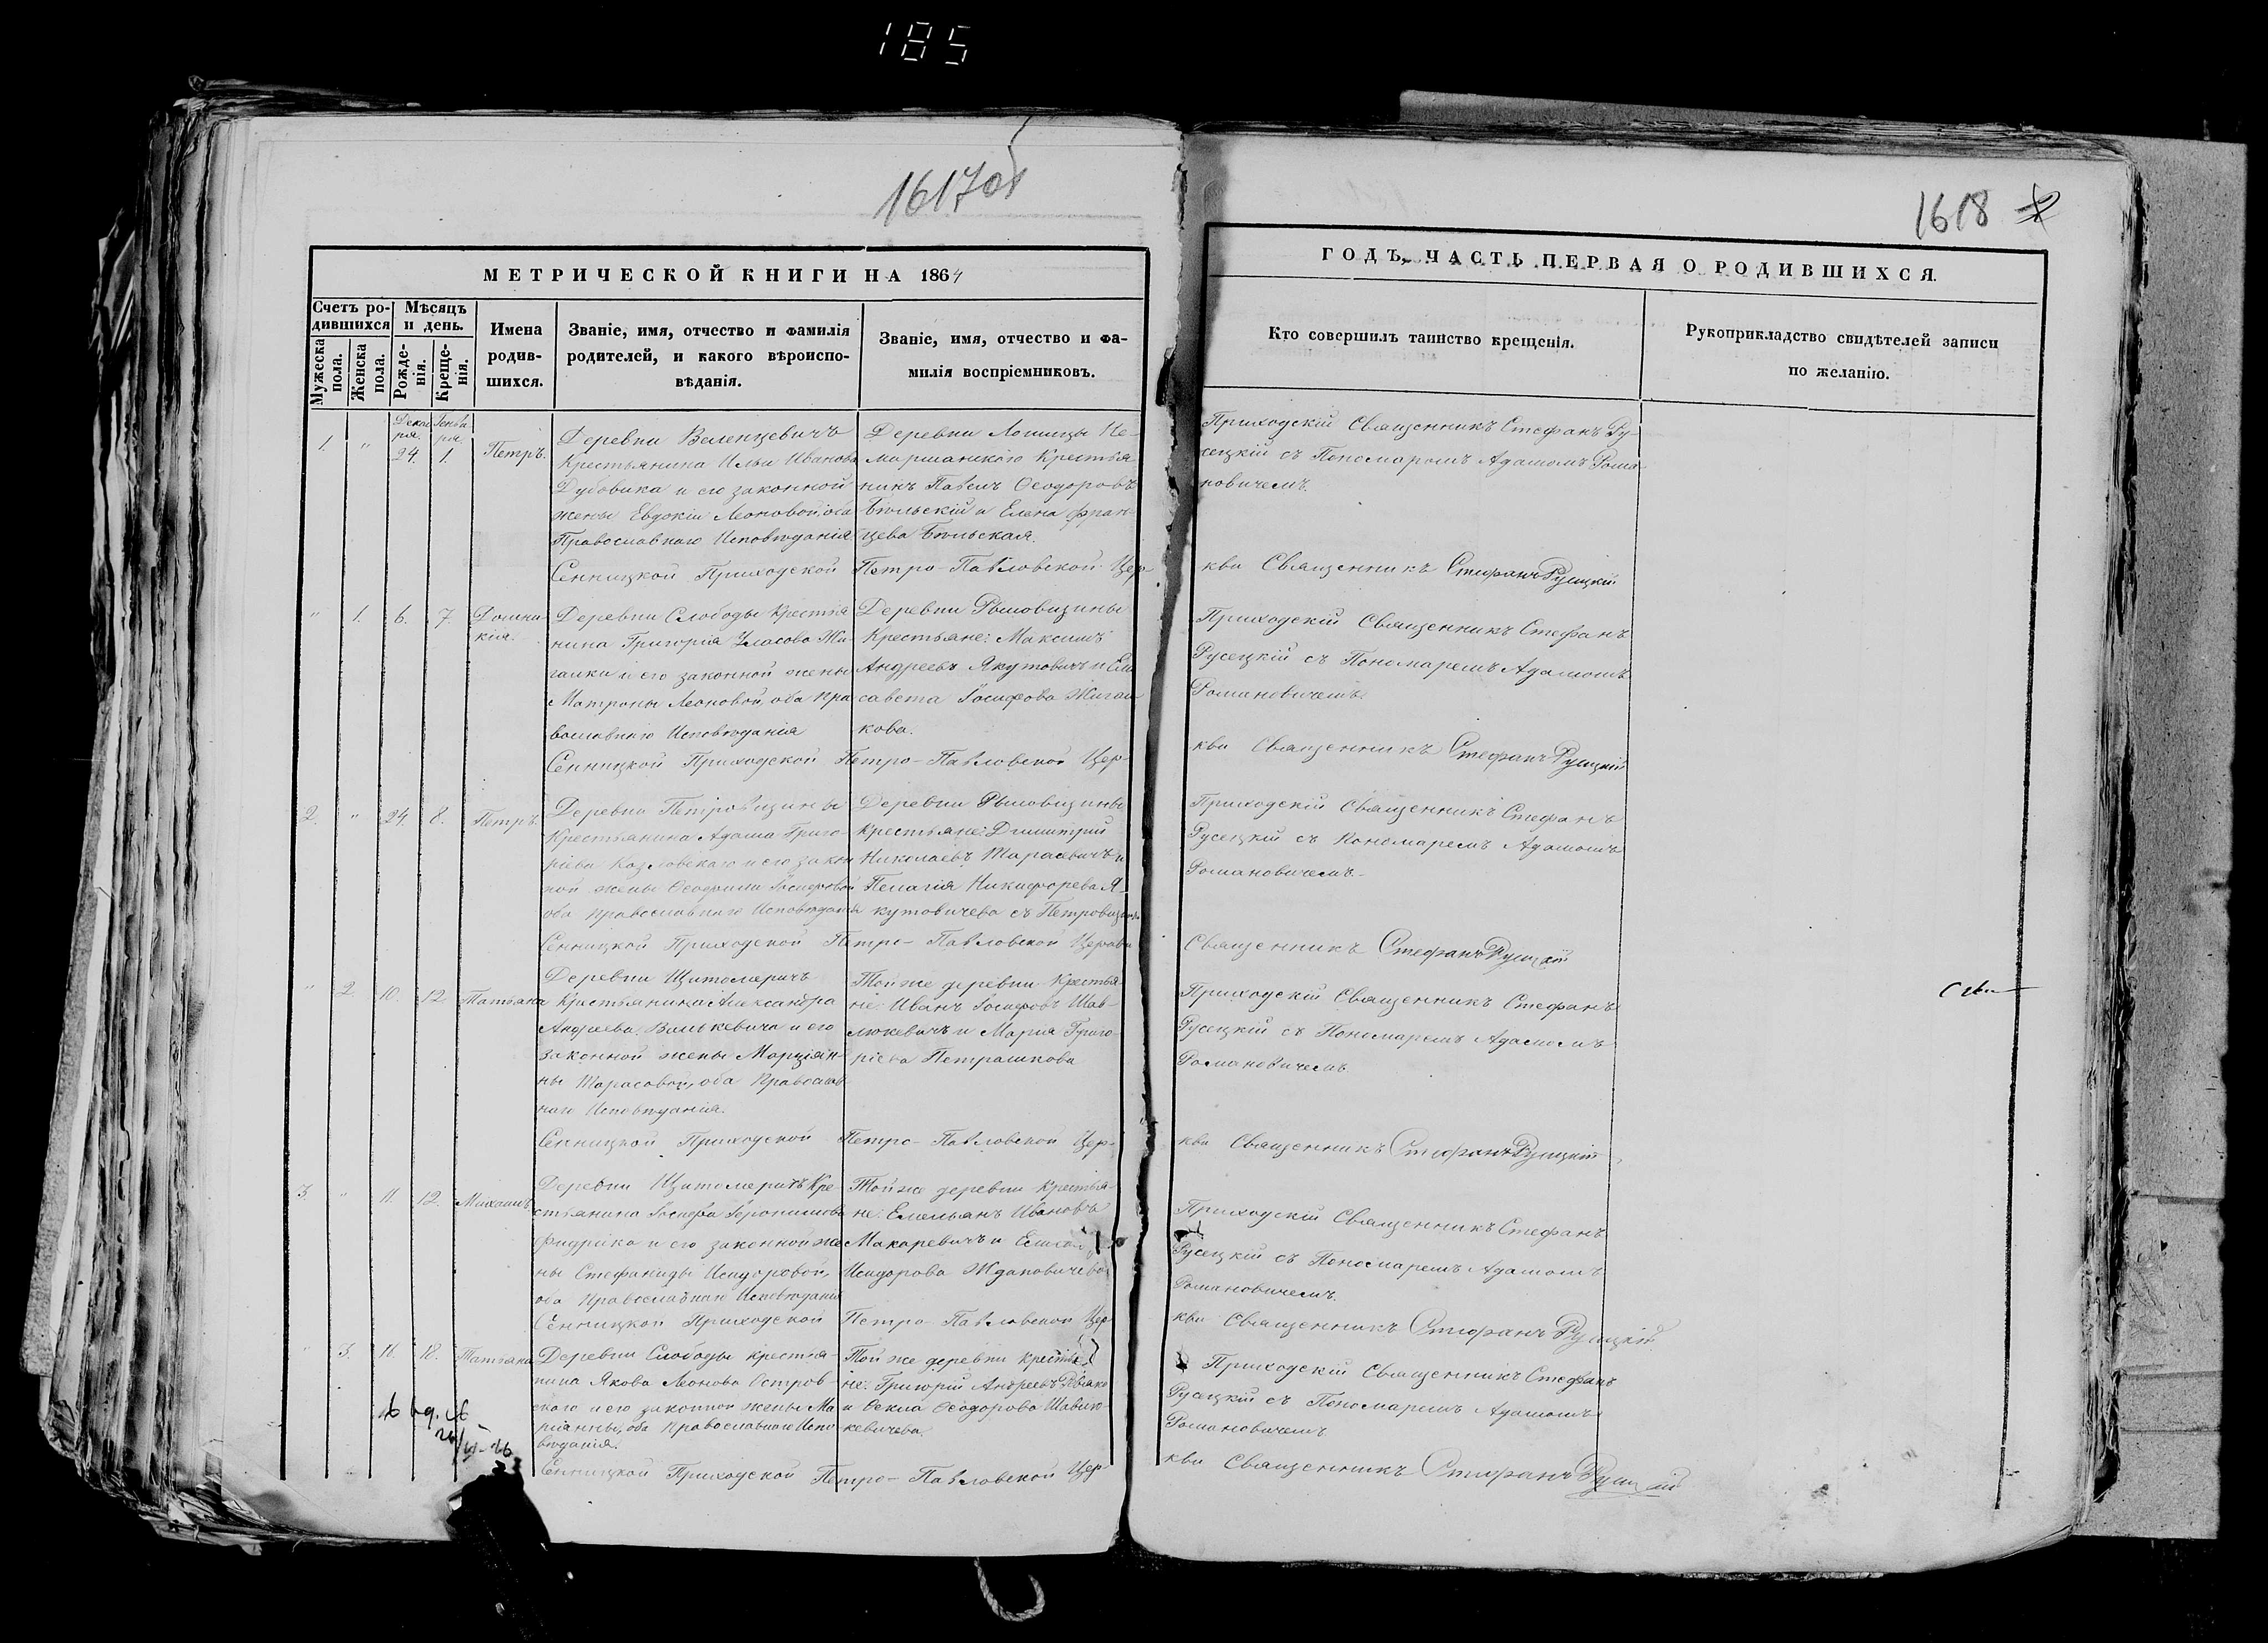 185
1617об
1618
МЕТРИЧЕСКОЙ КНИГИ НА 1864
Счетъ ро-
дившихся
Мужеска
пола.
Женска
пола.
Мѣсяцъ
и день.
Рожде-
нія.
Креще-
нія.
Имена
родив-
шихся.
Званіе, имя, отчество и фамилія
родителей, и какого вѣроиспо-
вѣданія.
Званіе, имя, отчество и фа-
милія воспріемниковъ.
ГОДЪ, ЧАСТЬ ПЕРВАЯ О РОДИВШИХСЯ.
Кто совершилъ таинство крещенія.
Рукоприкладство свидѣтелей записи
по желанію.
1. " Дека
бря 24. Генва
ря 1. Петръ.
Деревни Веленцевичъ
Крестьянина Ильи Иванова
Дубовика и его законной
жены Евдокіи Леоновой, оба
Православнаго Исповѣданія
Деревни Лошицы Не-
Крестья
никъ Павелъ Ѳеодоровъ
Бѣльскій и Елена Фран-
цева Бѣльская.
Приходскій Священникъ Стефанъ Ру-
сецкій съ Пономаремъ Адамомъ Рома
новичемъ.
Сенницкой Приходской Петро-Павловской Цер-
кви Священникъ Стефанъ Русецкій
" 1. 6. 7. Домни
кія.
Деревни Слободы Крестья
нина Григорія Уласова Жи-
галки и его законной жены
Матроны Леоновой, оба Пра
вославнаго Исповѣданія
Деревни Рымовщины
Крестьяне: Максимъ
Андреевъ Якутовичъ и Ели
савета Іосифова Жигал
кова.
Приходскій Священникъ Стефанъ
Русецкій съ Пономаремъ Адамомъ
Романовичемъ.
Сенницкой Приходской Петро-Павловской Цер-
кви Священникъ Стефанъ Русецкій
2. " 24. 8. Петръ.
Деревни Петровщины
Крестьянина Адама Григо-
ріева Козловскаго и его закон
ной жены Ѳеодосіи Іосифовой
оба Православнаго Исповѣданія
Деревни Рымовщины
Крестьяне: Димитрій
Николаевъ Тарасевичъ и
Пелагія Никифорева Я-
кутовичева съ Петровщины
Приходскій Священникъ Стефанъ
Русецкій съ Пономаремъ Адамомъ
Романовичемъ.
Сенницкой Приходской Петро-Павловской Церкви
Священникъ Стефанъ Русецкій
" 2. 10. 12. Татьяна
Деревни Щитомеричъ
Крестьянина Александра
Андреева Волькевича и его
законной жены Марціян-
ны Тарасовой, оба Православ
наго Исповѣданія.
Той же деревни Крестья-
не: Иванъ Іосифовъ Шав-
люкевичъ и Марія Григо-
ріева Петрашкова
Приходскій Священникъ Стефанъ
Русецкій съ Пономаремъ Адамомъ
Романовичемъ
Сенницкой Приходской Петро-Павловской Цер-
кви Священникъ Стефанъ Русецкій
3. " 11. 12. Михаилъ
Деревни Щитомеричъ Кре-
стьянина Іосифа Іеронимова
Фидрика и его законной же
ны Стефаниды Исидоровой,
оба Православнаго Исповѣданія
Той же деревни Крестья-
не: Емельянъ Ивановъ
Макаревичъ и
Исидорова Ждановичева
Приходскій Священникъ Стефанъ
Русецкій съ Пономаремъ Адамомъ
Романовичемъ.
Сенницкой Приходской Петро-Павловской Цер
кви Священникъ Стефанъ Русецкій.
" 3. 11. 18. Татьяна
Деревни Слободы крестья-
нина Якова Леонова Остров-
скаго и его законной жены Ма
ріанны, оба Православнаго Испо
вѣданія.
Той же деревни Крестья
не: Григорій Андреевъ
и Ѳекла Ѳеодорова Шавлю-
кевичева.
Приходскій Священникъ Стефанъ
Русецкій съ Пономаремъ Адамомъ
Романовичемъ
Сенницкой Приходской Петро-Павловской Цер-
кви Священникъ Стефанъ Русецкій